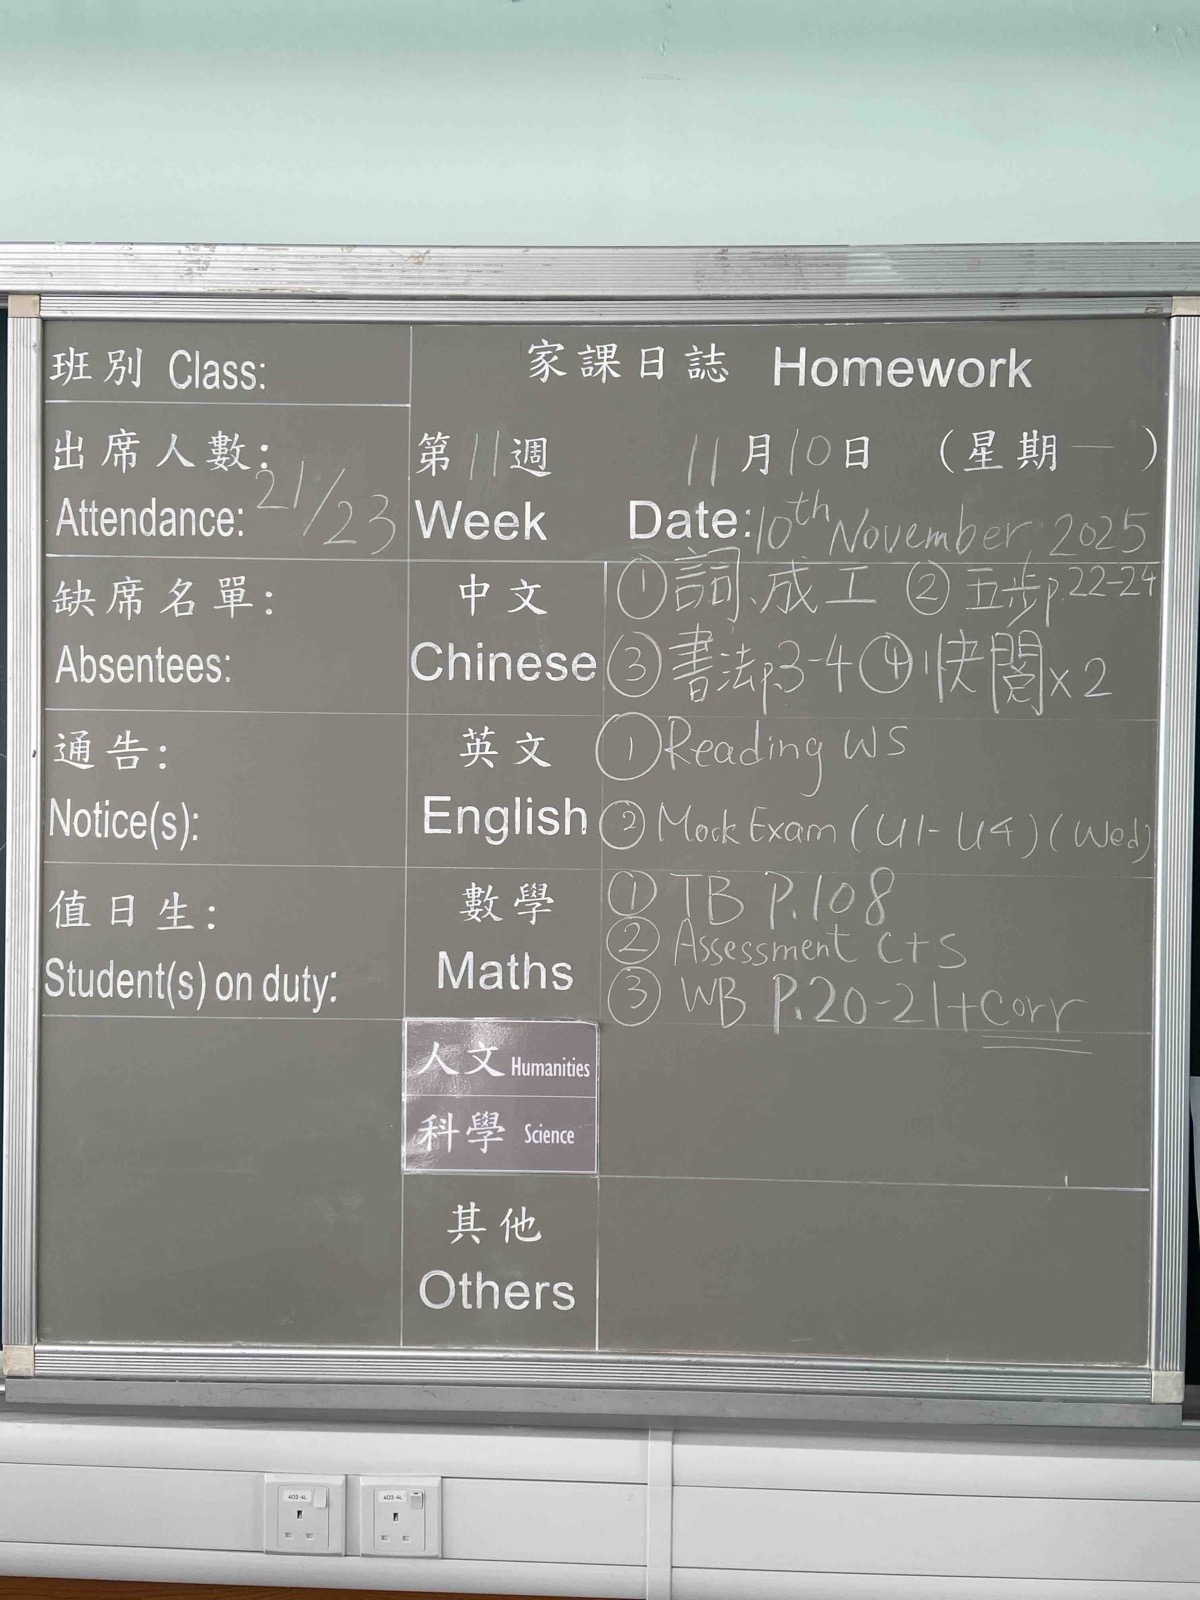 班別 Class:
家課日誌 Homework
出席人數:
Attendance: 21/23
第11週 11月10日 (星期一)
Week Date: 10th November, 2025
缺席名單:
Absentees:
中文
Chinese
①詞、成工 ②五步p.22-24
③書法p.3-4 ④快閱x2
通告:
Notice(s):
英文
English
①Reading WS
②Mock Exam (U1-U4) (Wed)
值日生:
Student(s) on duty:
數學
Maths
① TB P.108
② Assessment C+S
③ WB P.20-21+Corr
人文 Humanities
科學 Science
其他
Others
402-4L
402-4L